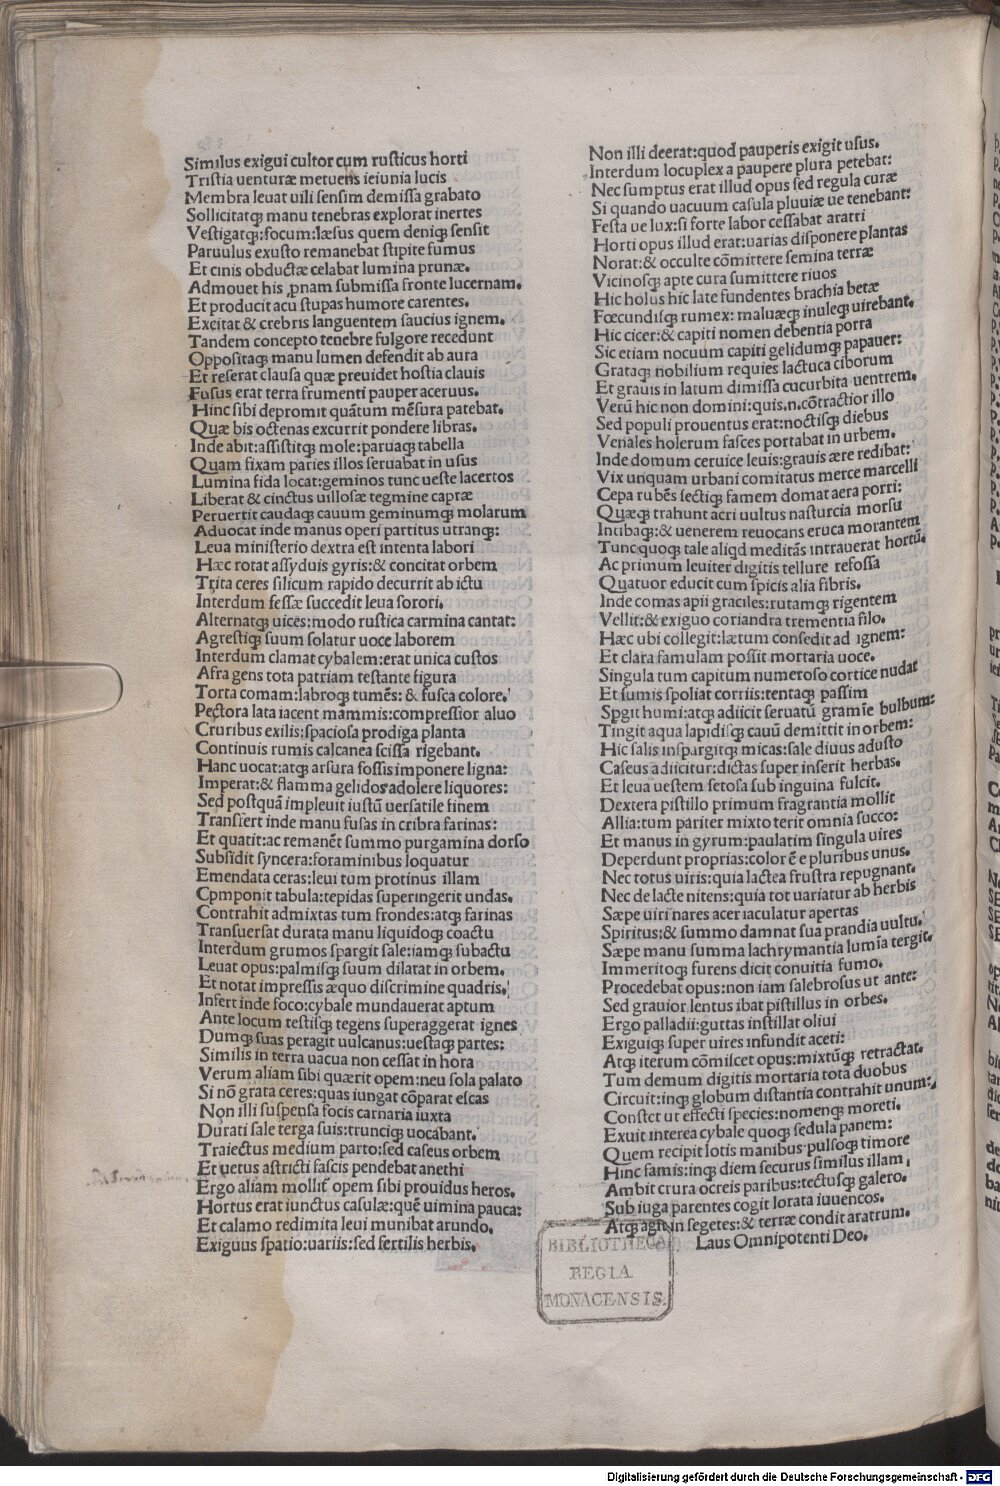 Similus exigui cultor cum rusticus horti
Tristia uenturæ metuens ieiunia lucis
Membra leuat uili sensim demissa grabato
Sollicitatqꝫ manu tenebras explorat inertes
Vestigatqꝫ:focum:læsus quem deniqꝫ sensit
Paruulus exusto remanebat stipite fumus
Et cinis obductæ celabat lumina prunæ.
Admouet his ꝓnam submissa fronte lucernam.
Et producit acu stupas humore carentes.
Excitat & crebris languentem saucius ignem.
Tandem concepto tenebre fulgore recedunt
Oppositaqꝫ manu lumen defendit ab aura
Et reserat clausa quæ preuidet hostia clauis
Fusus erat terra frumenti pauper aceruus.
Hinc sibi depromit quãtum mẽsura patebat.
Quæ bis octenas excurrit pondere libras.
Inde abit:assistitqꝫ mole:paruaqꝫ tabella
Quam fixam paries illos seruabat in usus
Lumina fida locat:geminos tunc ueste lacertos
Liberat & cinctus uillosæ tegmine capræ
Peruertit caudaqꝫ cauum geminumqꝫ molarum
Aduocat inde manus operi partitus utranqꝫ:
Leua ministerio dextra est intenta labori
Hæc rotat assyduis gyris:& concitat orbem
Trita ceres silicum rapido decurrit ab ictu
Interdum fessæ succedit leua sorori.
Alternatqꝫ uices:modo rustica carmina cantat:
Agrestiqꝫ suum solatur uoce laborem
Interdum clamat cybalem:erat unica custos
Afra gens tota patriam testante figura
Torta comam:labroqꝫ tumẽs: & fusca colore.
Pectora lata iacent mammis:compressior aluo
Cruribus exilis:spaciosa prodiga planta
Continuis rumis calcanea scissa rigebant.
Hanc uocat:atqꝫ arsura fossis imponere ligna:
Imperat:& flamma gelidos adolere liquores:
Sed postquã impleuit iustũ uersatile finem
Transfert inde manu fusas in cribra farinas:
Et quatit:ac remanẽt summo purgamina dorso
Subsidit syncera:foraminibus loquatur
Emendata ceras:leui tum protinus illam
Componit tabula:tepidas superingerit undas.
Contrahit admixtas tum frondes:atqꝫ farinas
Transuersat durata manu liquidoqꝫ coactu
Interdum grumos spargit sale:iamqꝫ subactu
Leuat opus:palmisqꝫ suum dilatat in orbem.
Et notat impressis æquo discrimine quadris.
Infert inde foco:cybale mundauerat aptum
Ante locum testisqꝫ tegens superaggerat ignes
Dumqꝫ suas peragit uulcanus:uestaqꝫ partes:
Similis in terra uacua non cessat in hora
Verum aliam sibi quærit opem:neu sola palato
Si nõ grata ceres:quas iungat cõparat escas
Non illi suspensa focis carnaria iuxta
Durati sale terga suis:trunciqꝫ uocabant.
Traiectus medium parto:sed caseus orbem
Et uetus astricti fascis pendebat anethi
Ergo aliam mollit̃ opem sibi prouidus heros.
Hortus erat iunctus casulæ:quẽ uimina pauca:
Et calamo redimita leui munibat arundo.
Exiguus spatio:uariis:sed fertilis herbis.
Non illi deerat:quod pauperis exigit usus.
Interdum locuplex a paupere plura petebat:
Nec sumptus erat illud opus sed regula curæ
Si quando uacuum casula pluuiæ ue tenebant:
Festa ue lux:si forte labor cessabat aratri
Horti opus illud erat:uarias disponere plantas
Norat:& occulte cõmittere semina terræ
Vicinosqꝫ apte cura sumittere riuos
Hic holus hic late fundentes brachia betæ
Fœcundisqꝫ rumex: maluæqꝫ inuleqꝫ uirebant.
Hic cicer:& capiti nomen debentia porra
Sic etiam nocuum capiti gelidumqꝫ papauer:
Grataqꝫ nobilium requies lactuca ciborum
Et grauis in latum dimissa cucurbita uentrem.
Verũ hic non domini:quis.n.cõtractior illo
Sed populi prouentus erat:noctisqꝫ diebus
Venales holerum fasces portabat in urbem.
Inde domum ceruice leuis:grauis ære redibat:
Vix unquam urbani comitatus merce marcelli
Cepa rubẽs sectiqꝫ famem domat aera porri:
Quæqꝫ trahunt acri uultus nasturcia morsu
Intibaqꝫ:& uenerem reuocans eruca morantem
Tunc quoqꝫ tale aliqd meditãs intrauerat hortũ.
Ac primum leuiter digitis tellure refossa
Quatuor educit cum spicis alia fibris.
Inde comas apii graciles:rutamqꝫ rigentem
Vellit:& exiguo coriandra trementia filo.
Hæc ubi collegit:lætum consedit ad ignem:
Et clara famulam possit mortaria uoce.
Singula tum capitum numeroso cortice nudat
Et sumis spoliat corriis:tentaqꝫ passim
Spgit humi:atqꝫ adiicit seruatũ gramĩe bulbum:
Tingit aqua lapidisqꝫ cauũ demittit in orbem:
Hic salis inspargitqꝫ micas:sale diuus adusto
Caseus adiicitur:dictas super inserit herbas.
Et leua uestem setosa sub inguina fulcit.
Dextera pistillo primum fragrantia mollit
Allia:tum pariter mixto terit omnia succo:
Et manus in gyrum:paulatim singula uires
Deperdunt proprias:color ẽ e pluribus unus.
Nec totus uiris:quia lactea frustra repugnant.
Nec de lacte nitens:quia tot uariatur ab herbis
Sæpe uiri nares acer iaculatur apertas
Spiritus:& summo damnat sua prandia uultu.
Sæpe manu summa lachrymantia lumĩa tergit.
Immeritoqꝫ furens dicit conuitia fumo.
Procedebat opus:non iam salebrosus ut ante:
Sed grauior lentus ibat pistillus in orbes.
Ergo palladii:guttas instillat oliui
Exiguiqꝫ super uires infundit aceti:
Atqꝫ iterum cõmiscet opus:mixtũqꝫ retractat.
Tum demum digitis mortaria tota duobus
Circuit:inqꝫ globum distantia contrahit unum:
Constet ut effecti species:nomenqꝫ moreti.
Exuit interea cybale quoqꝫ sedula panem:
Quem recipit lotis manibus pulsoqꝫ timore
Hinc famis:inqꝫ diem securus similus illam
Ambit crura ocreis paribus:tectusqꝫ galero.
Sub iuga parentes cogit lorata iuuencos.
Atqꝫ agit in segetes:& terræ condit aratrum.
Laus Omnipotenti Deo.
BIBLIOTHECA
REGIA
MONACENSIS.
Digitalisierung gefördert durch die Deutsche Forschungsgemeinschaft - DFG